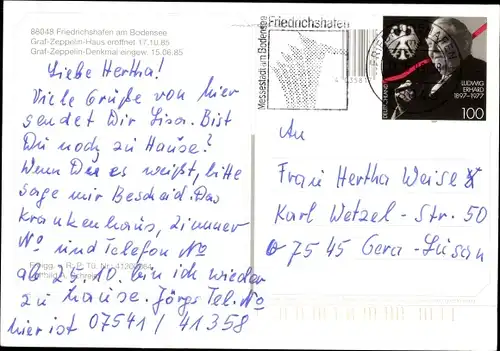 88048 Friedrichshafen am Bodensee
Graf-Zeppelin-Haus eröffnet 17.10.85
Graf-Zeppelin-Denkmal eingew. 15.06.85
Liebe Hertha!
Viele Grüße von hier
sendet Dir Lisa. Bist
Du noch zu Hause?
Wenn Du es weißt, bitte
sage mir Bescheid. Das
Krankenhaus, Zimmer
No und Telefon No
ab 25.10. bin ich wieder
zu Hause. Jörgs Tel. No
hier ist 07541 / 41358
Friedrichshafen
Messestadt am Bodensee
DEUTSCHLAND
LUDWIG
ERHARD
1897-1977
100
An
Frau Hertha Weise
Karl Wetzel-Str. 50
07545 Gera-Lusan